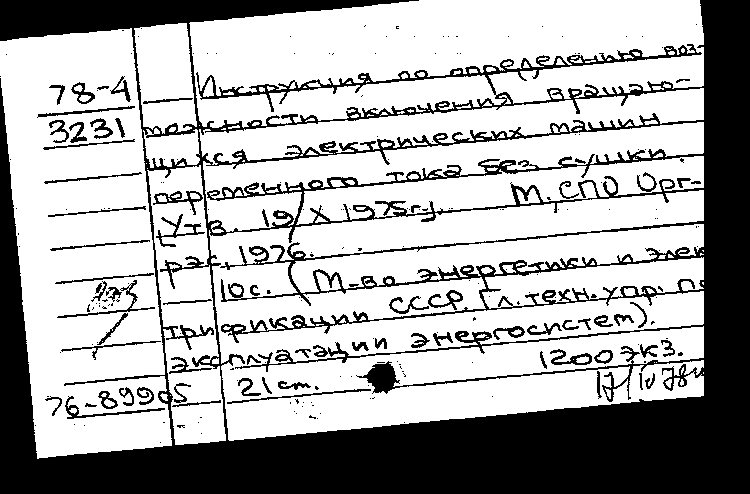 78-4 Инструкция по определению воз-
3231 можности включения вращаю-
щихся электрических машин
переменного тока без сушки.
[Утв. 19/X 1975г.]. М., СПО Орг-
рэс, 1976.
10с. (М-во энергетики и элек
трификации СССР. Гл. техн. упр. по
эксплуатации энергосистем).
76-89905 21 см. 1200 экз.